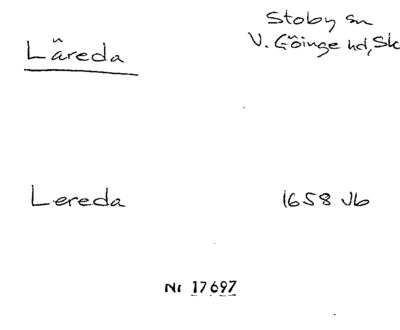 Stoby sn
Läreda
V. Göinge hd, Sk
Lereda 1658 Jb
Nr 17697